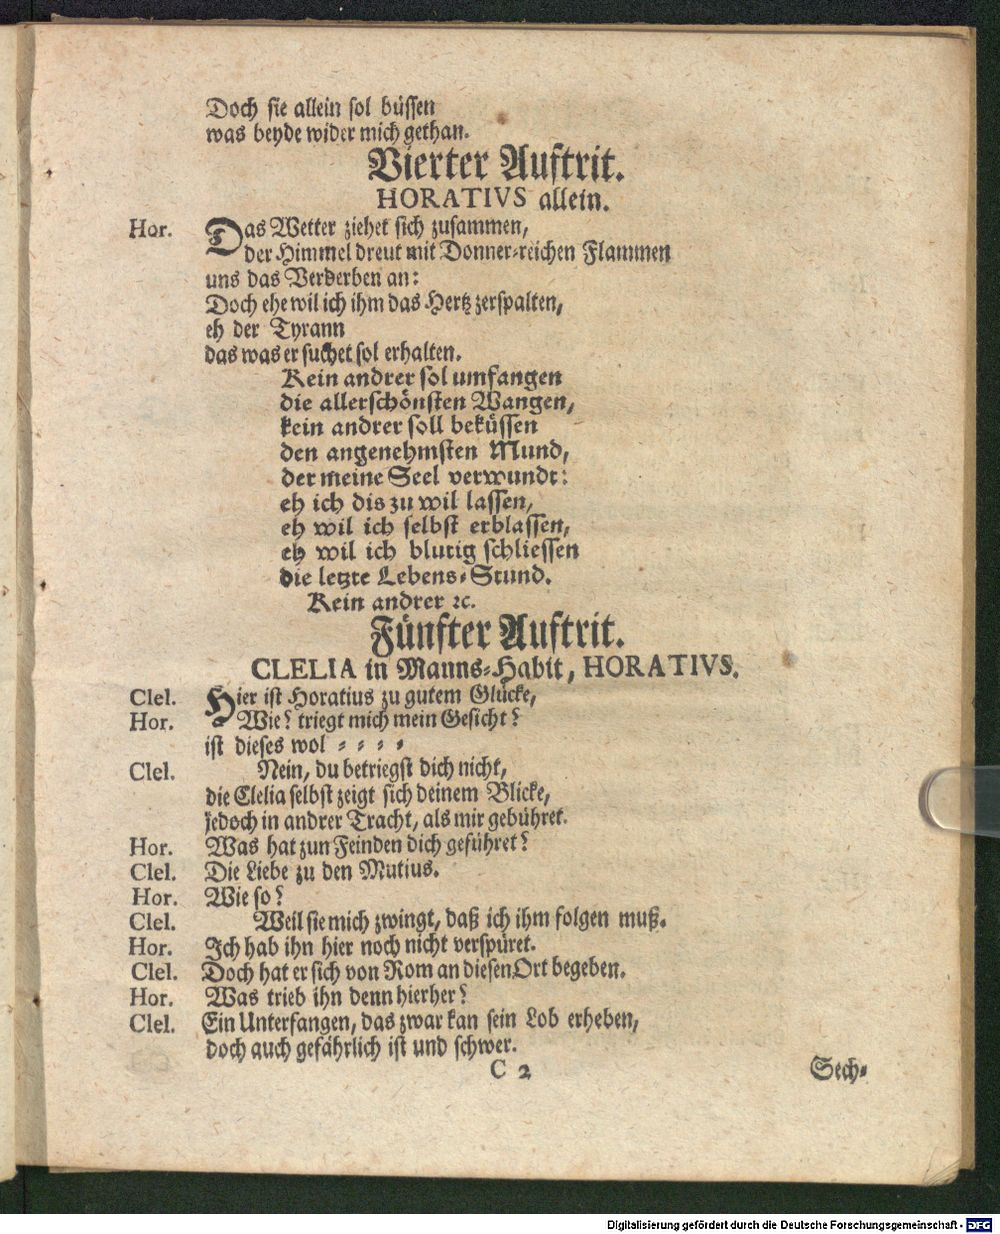 Doch sie allein sol büssen
was beyde wider mich gethan.
Vierter Auftrit.
HORATIVS allein.
Hor. Das Wetter ziehet sich zusammen,
der Himmel dreut mit Donner-reichen Flammen
uns das Verderben an:
Doch ehe wil ich ihm das Hertz zerspalten,
eh der Tyrann
das was er suchet sol erhalten.
Kein andrer sol umfangen
die allerschönsten Wangen,
kein andrer soll beküssen
den angenehmsten Mund,
der meine Seel verwundt:
eh ich dis zu wil lassen,
eh wil ich selbst erblassen,
eh wil ich blutig schliessen
die letzte Lebens-Stund.
Kein andrer ꝛc.
Fünfter Auftrit.
CLELIA in Manns-Habit, HORATIVS.
Clel. Hier ist Horatius zu gutem Glücke,
Hor. Wie? triegt mich mein Gesicht?
ist dieses wol - - - -
Clel. Nein, du betriegst dich nicht,
die Clelia selbst zeigt sich deinem Blicke,
jedoch in andrer Tracht, als mir gebühret.
Hor. Was hat zun Feinden dich geführet?
Clel. Die Liebe zu den Mutius.
Hor. Wie so?
Clel. Weil sie mich zwingt, daß ich ihm folgen muß.
Hor. Ich hab ihn hier noch nicht verspüret.
Clel. Doch hat er sich von Rom an diesen Ort begeben.
Hor. Was trieb ihn denn hierher?
Clel. Ein Unterfangen, das zwar kan sein Lob erheben,
doch auch gefährlich ist und schwer.
C 2 Sech-
Digitalisierung gefördert durch die Deutsche Forschungsgemeinschaft - DFG